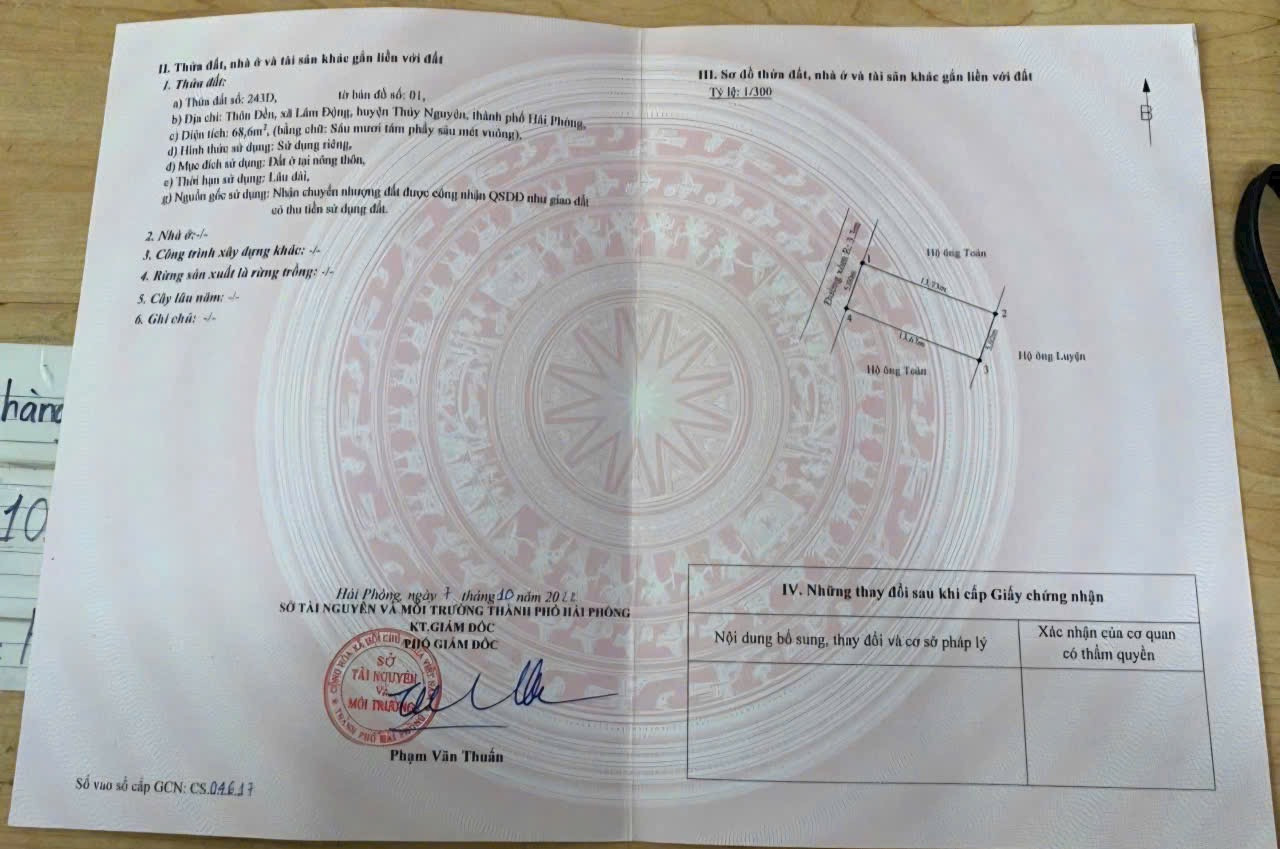 II. Thửa đất, nhà ở và tài sản khác gắn liền với đất
1. Thửa đất:
a) Thửa đất số: 243D, tờ bản đồ số: 01,
b) Địa chỉ: Thôn Đền, xã Lâm Động, huyện Thủy Nguyên, thành phố Hải Phòng,
c) Diện tích: 68,6m², (bằng chữ: Sáu mươi tám phẩy sáu mét vuông),
d) Hình thức sử dụng: Sử dụng riêng,
đ) Mục đích sử dụng: Đất ở tại nông thôn,
e) Thời hạn sử dụng: Lâu dài,
g) Nguồn gốc sử dụng: Nhận chuyển nhượng đất được công nhận QSDĐ như giao đất
có thu tiền sử dụng đất.
2. Nhà ở:-/-
3. Công trình xây dựng khác: -/-
4. Rừng sản xuất là rừng trồng: -/-
5. Cây lâu năm: -/-
6. Ghi chú: -/-
Hải Phòng, ngày 7 tháng 10 năm 2022
SỞ TÀI NGUYÊN VÀ MÔI TRƯỜNG THÀNH PHỐ HẢI PHÒNG
KT.GIÁM ĐỐC
PHÓ GIÁM ĐỐC
CỘNG HÒA XÃ HỘI CHỦ NGHĨA VIỆT NAM
SỞ
TÀI NGUYÊN
VÀ
MÔI TRƯỜNG
THÀNH PHỐ HẢI PHÒNG
Phạm Văn Thuấn
Số vào sổ cấp GCN: CS.04617
III. Sơ đồ thửa đất, nhà ở và tài sản khác gắn liền với đất
Tỷ lệ: 1/300
B
Đường xóm R: 3.3m
1
Hộ ông Toản
5.00m
13.73m
2
4
13.67m
3
Hộ ông Luyện
Hộ ông Toản
IV. Những thay đổi sau khi cấp Giấy chứng nhận
Nội dung bổ sung, thay đổi và cơ sở pháp lý
Xác nhận của cơ quan
có thẩm quyền
hàng
10